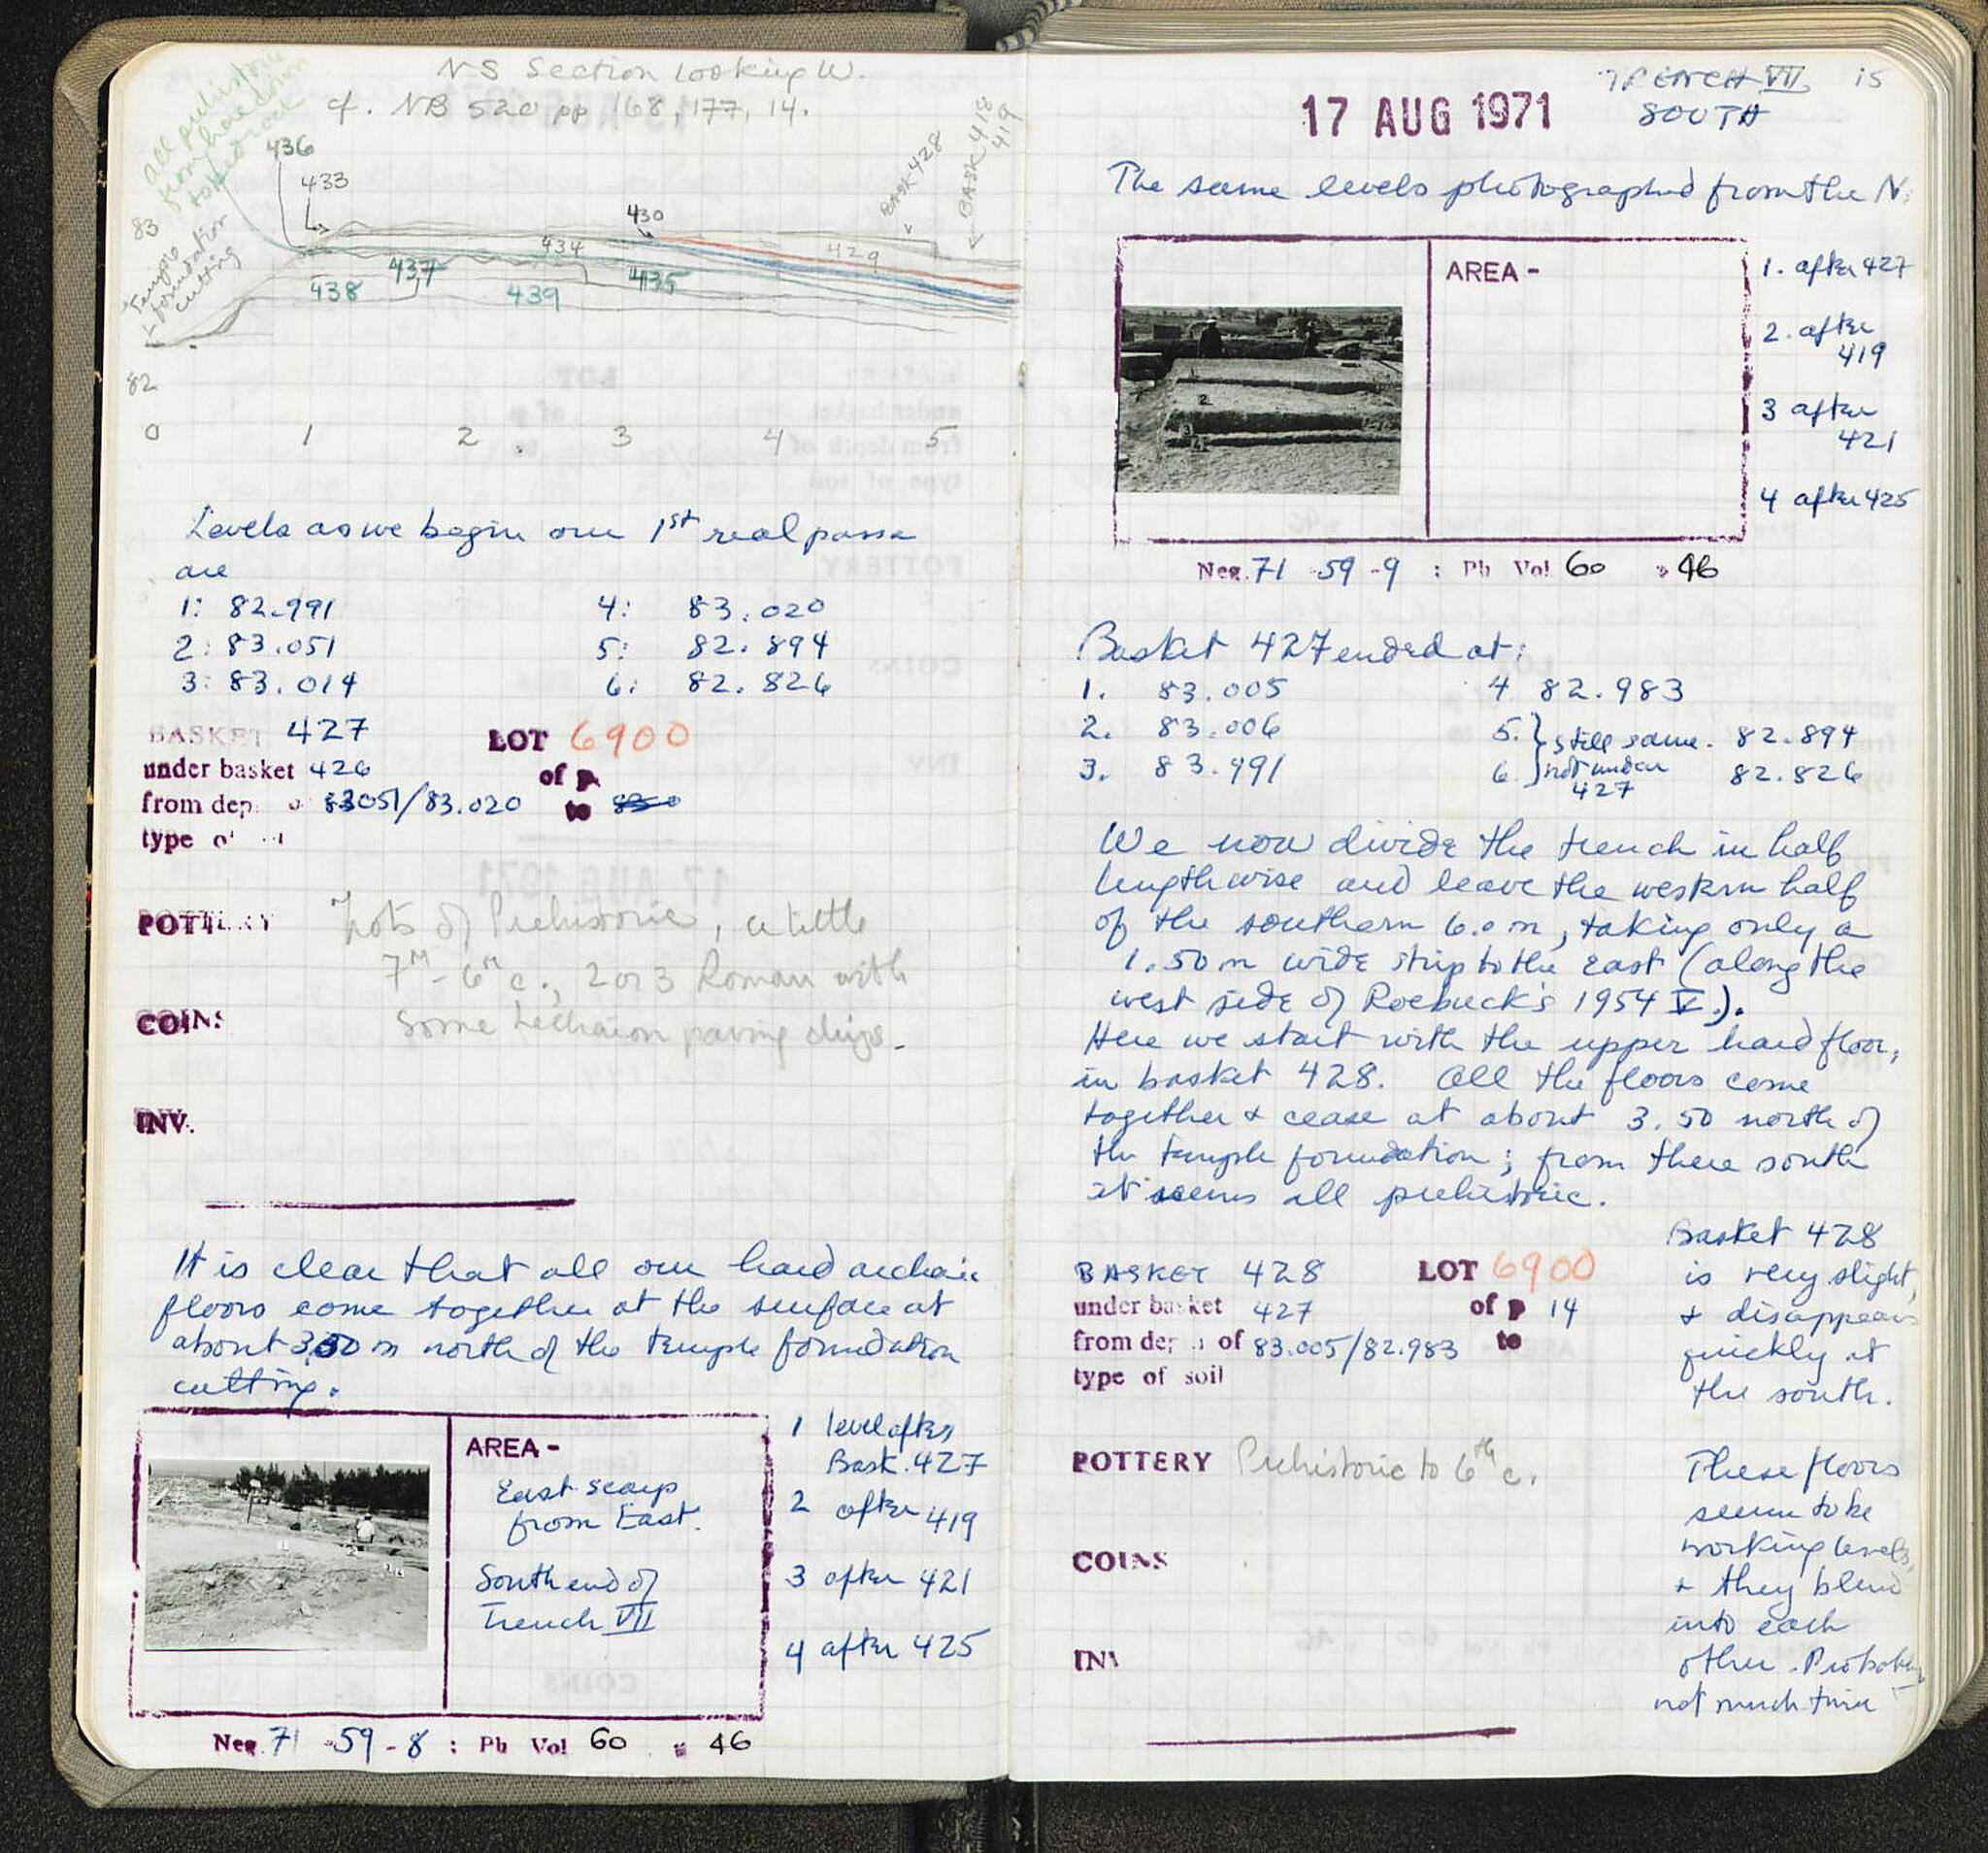 NS Section looking W.
cf. NB 520 pp 168, 177, 14.
all prehistoric
from here down
436
433
430
BASK 428
BASK 418
419
83
434
429
437
435
438
439
Temple
foundation
cutting
82
0 1 2 3 4 5
Levels as we begin our 1st real passe
are
1: 82.991 4: 83.020
2: 83.051 5: 82.894
3: 83.014 6: 82.826
BASKET 427 LOT 6900
under basket 426 of p.
from dep 83051/83.020 to
type o
POTTERY Lots of Prehistoric, a little
7th - 6th c., 2 or 3 Roman with
some Lechaion paving chips.
COINS
INV.
It is clear that all our hard archaic
floors come together at the surface at
about 3.50 m north of the temple foundation
cutting.
AREA -
East scarp
from East.
South end of
Trench VII
1 level after
Bask. 427
2 after 419
3 after 421
4 after 425
Neg. 71 - 59 - 8 : Ph Vol 60 p 46
TRENCH VII 15
SOUTH
17 AUG 1971
The same levels photographed from the N.
AREA -
2
3
4
1. after 427
2. after
419
3 after
421
4 after 425
Neg. 71 59 - 9 : Ph Vol 60 p 46
Basket 427 ended at:
1. 83.005 4 82.983
2. 83.006 5. } still same. 82.894
3. 83.991 6. } not under 82.826
427
We now divide the trench in half
lengthwise and leave the western half
of the southern 6.0 m, taking only a
1.50 m wide strip to the east (along the
west side of Roebuck's 1954 V.).
Here we start with the upper hard floor,
in basket 428. All the floors come
together + cease at about 3.50 north of
the temple foundation; from there south
it seems all prehistoric.
BASKET 428 LOT 6900
under basket 427 of p 14
from dep of 83.005/82.983 to
type of soil
POTTERY Prehistoric to 6th c.
COINS
INV
Basket 428
is very slight,
+ disappears
quickly at
the south.
These floors
seem to be
working levels,
+ they blend
into each
other. Probably
not much time